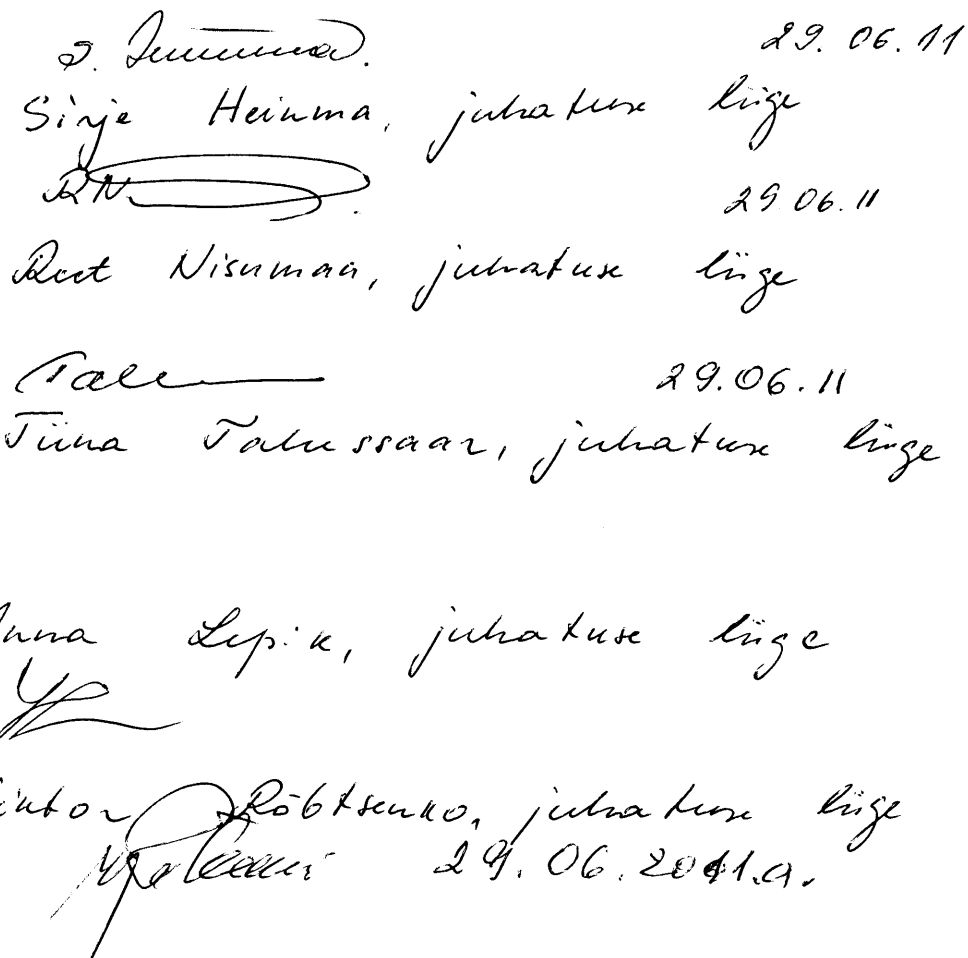 29.06.11
Sirje Heinma, juhatuse liige
RN 29 06.11
Reet Nisumaa, juhatuse liige
29.06.11
Tiina Talussaar, juhatuse liige
Lepik, juhatuse liige
Rõbtsenko, juhatuse liige
29.06.2011.a.